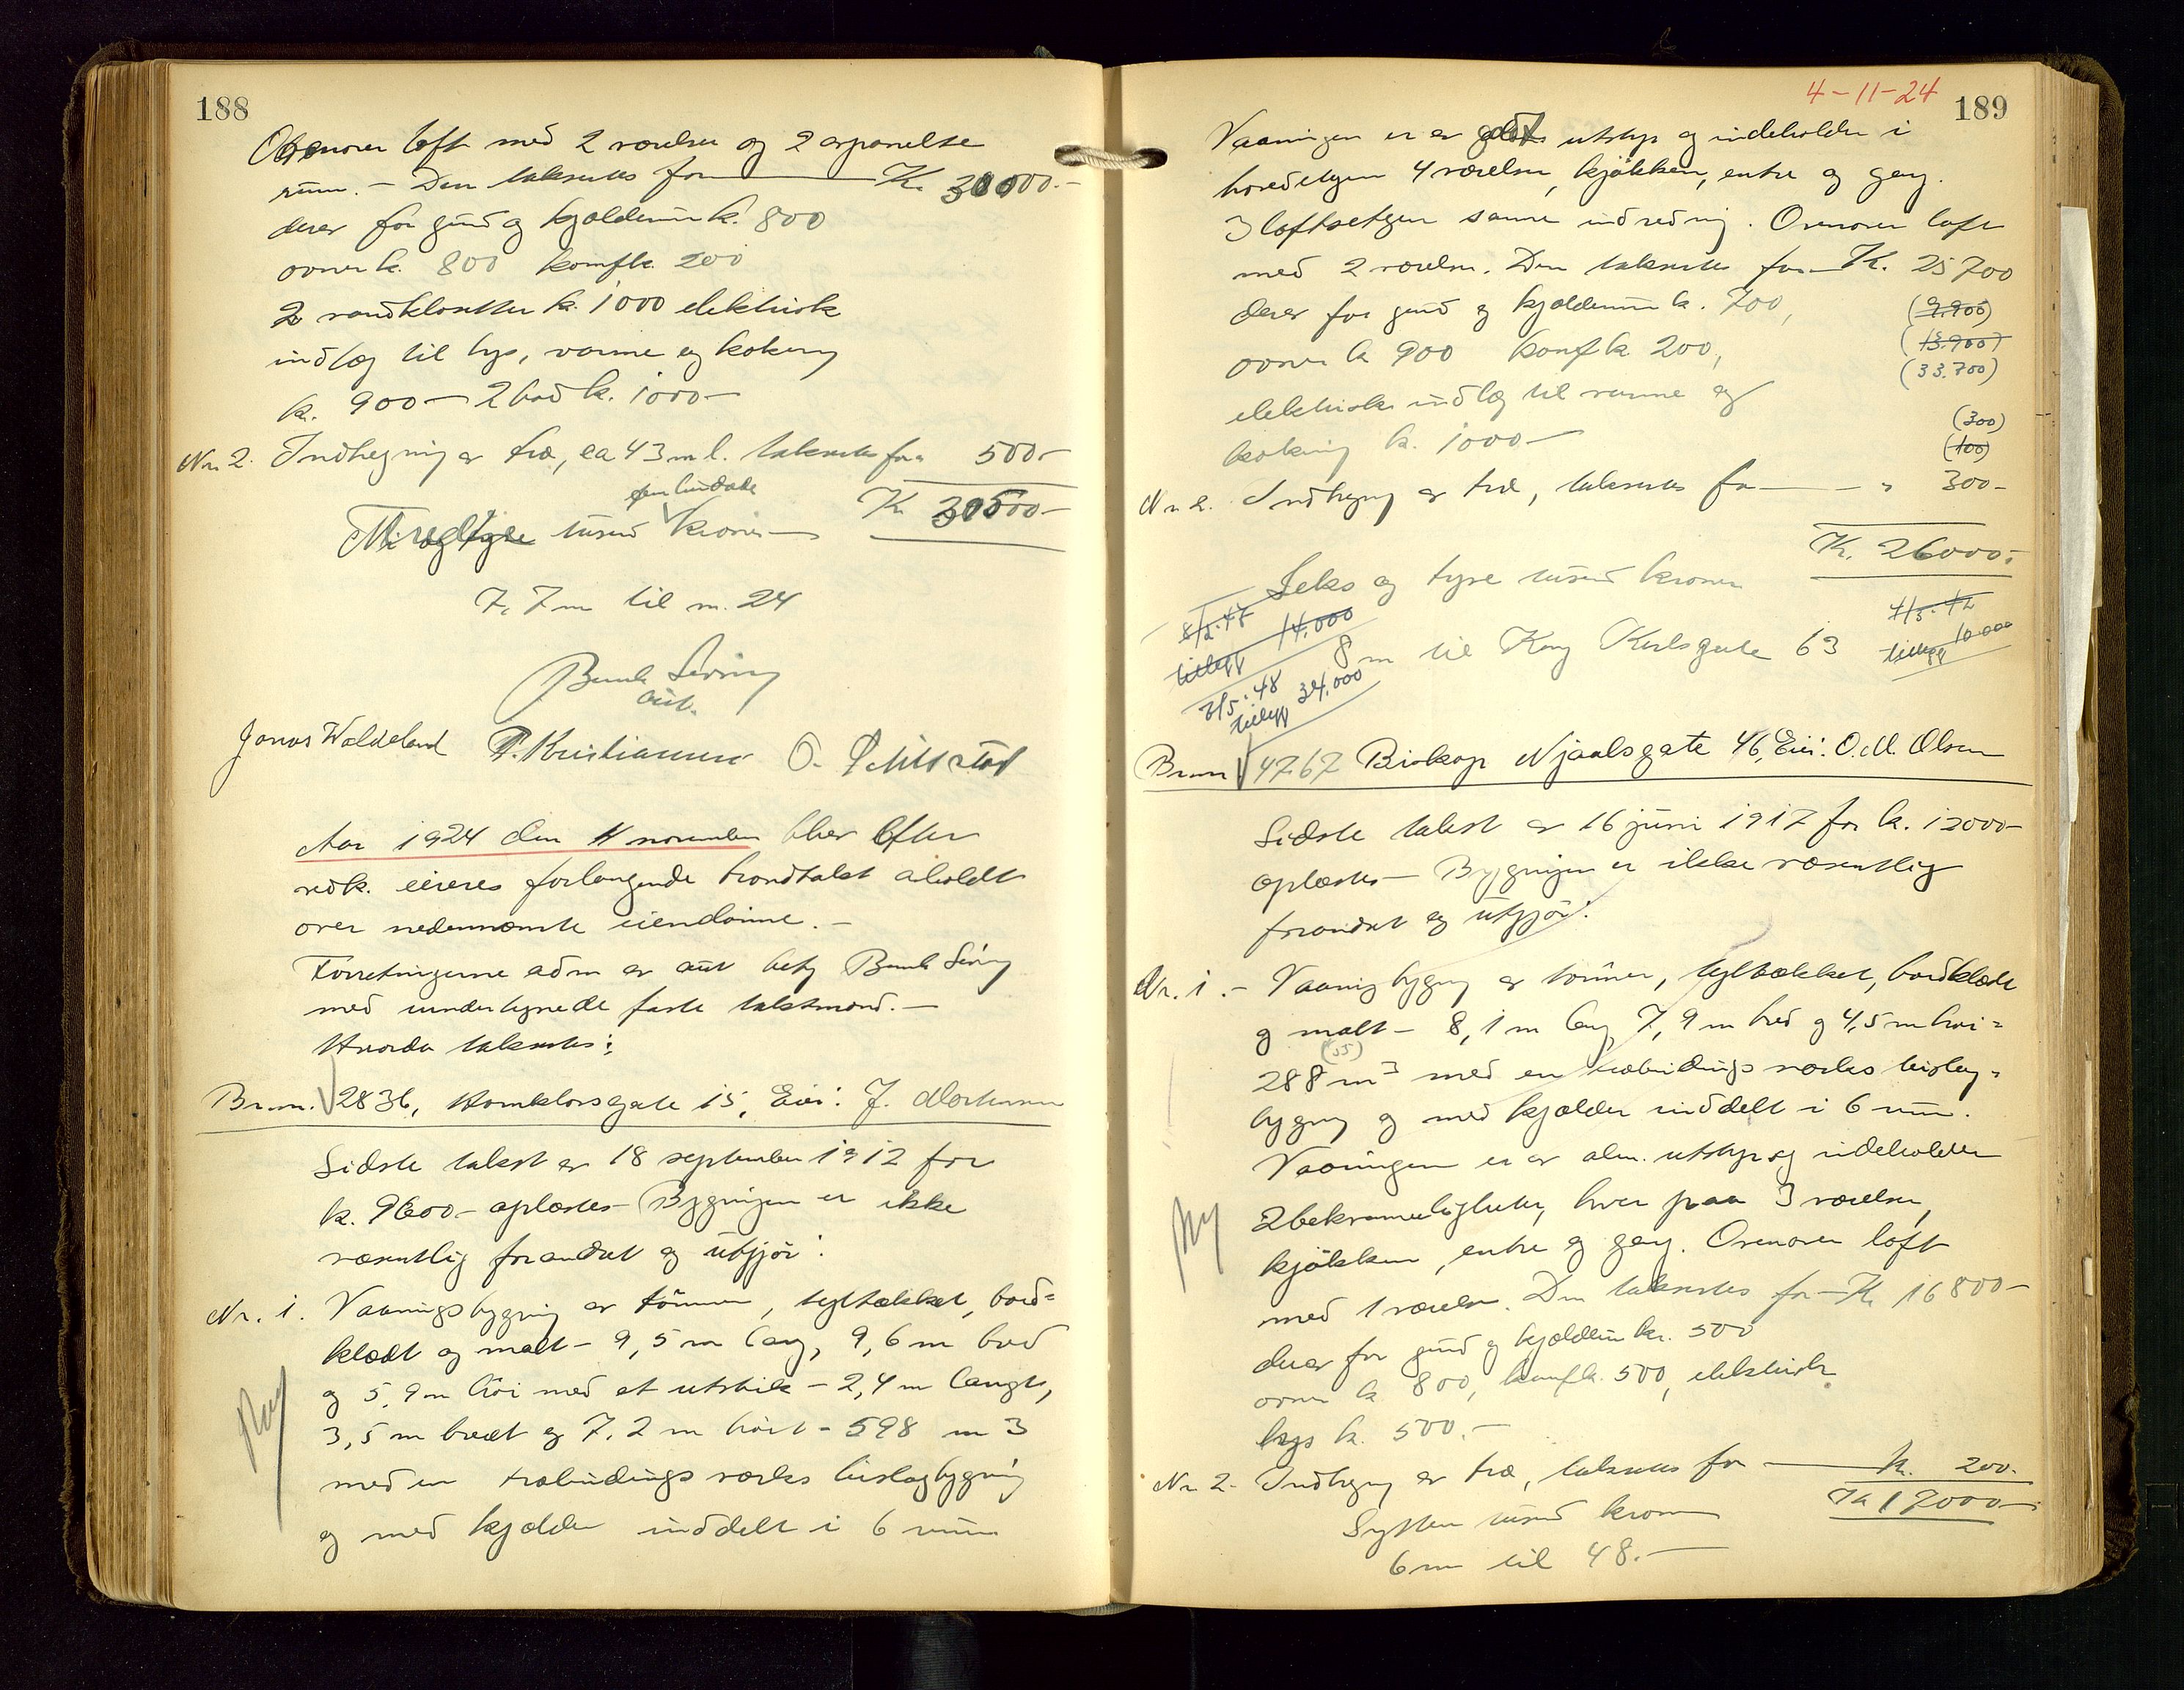 188
Ovenover loft med 2 værelser og 2 avpanelte
rum. - Den taksertes for K. 30000.-
derav for grund og kjældermur k. 800
ovner k. 800 komf k. 200
2 vandklosetter k. 1000 elektrisk
indlæg til lys, varme og kokning
k. 900 - 2 bad k. 1000 -
Nr. 2. Indhegning av træ, ca 43 m l. taksertes for 500 -
K 30500 -
femhundrede
Treti tusind kroner -
7,7 m til nr. 24
Bernh Seving
aut.
Jonas Waldeland P. Kristiansen O.
Aar 1924 den 4 november blev efter
vedk. eieres forlangende brandtakst avholdt
over nedennævnte eiendomme. -
Forretningerne adm av aut befg Bernh Seving
med undertegnede faste takstmænd. -
Hvorda taksertes:
Br.nr. 2836, Hornklovsgate 15, Eier: J. Mortensen
Sidste takst av 18 september 1912 for
k. 9600 - oplæstes - Bygningen er ikke
væsentlig forandret og utgjør:
Nr. 1. Vaaningsbygning av tømmer, tegltækket, bord-
klædt og malt - 9,5 m lang, 9,6 m bred
og 5,9 m høi med et utstik - 2,4 m langt,
3,5 m bredt og 7,2 m høit - 598 m 3
Ny
med en træbindingsverks bislagbygning
og med kjælder inddelt i 6 rum
4-11-24
189
Vaaningen er av godt utstyr og indeholder i
hovedetagen 4 værelser, kjøkken, entre og gang.
I loftsetagen samme indredning. Ovenover loft
med 2 værelser. Den taksertes for K. 25700
derav for grund og kjældermur k. 700,
(9.900)
ovner k 900 komf k. 200,
(13.900)
(33.700)
elektrisk indlæg til varme og
kokning k. 1000 -
(300)
(100)
Nr 2. Indhegning av træ, taksertes for " 300 -
K. 26000.-
Seks og tyve tusind kroner
8/2.48
tillegg 14.000
4/3.42
tillegg 10.000
8 m til Kong Karlsgate 63
3/5.48
tillegg 34.000
Br.nr 4767 Biskop Njaalsgate 46, Eier: O. M. Olsen
Sidste takst av 16 juni 1917 for k. 12000 -
oplæstes - Bygningen er ikke væsentlig
forandret og utgjør:
Nr. 1. - Vaaningsbygning av tømmer, tegltækket, bordklædt
og malt - 8,1 m lang, 7,9 m bred og 4,5 m høi =
(55)
288 m3 med en træbindingsverks bislag-
bygning og med kjælder inddelt i 6 rum.
Vaaningen er av alm. utstyr og indeholder
Ny
2 bekvemmeligheter, hver paa 3 værelser,
kjøkken, entre og gang. Ovenover loft
med 1 værelse. Den taksertes for K 16800 -
derav for grund og kjældermur kr. 500
ovner k 800, komf k. 500, elektrisk
lys k. 500. -
Nr 2. Indhegning av træ, taksertes for K. 200.
K 17000 -
Sytten tusind kroner
6 m til 48. -